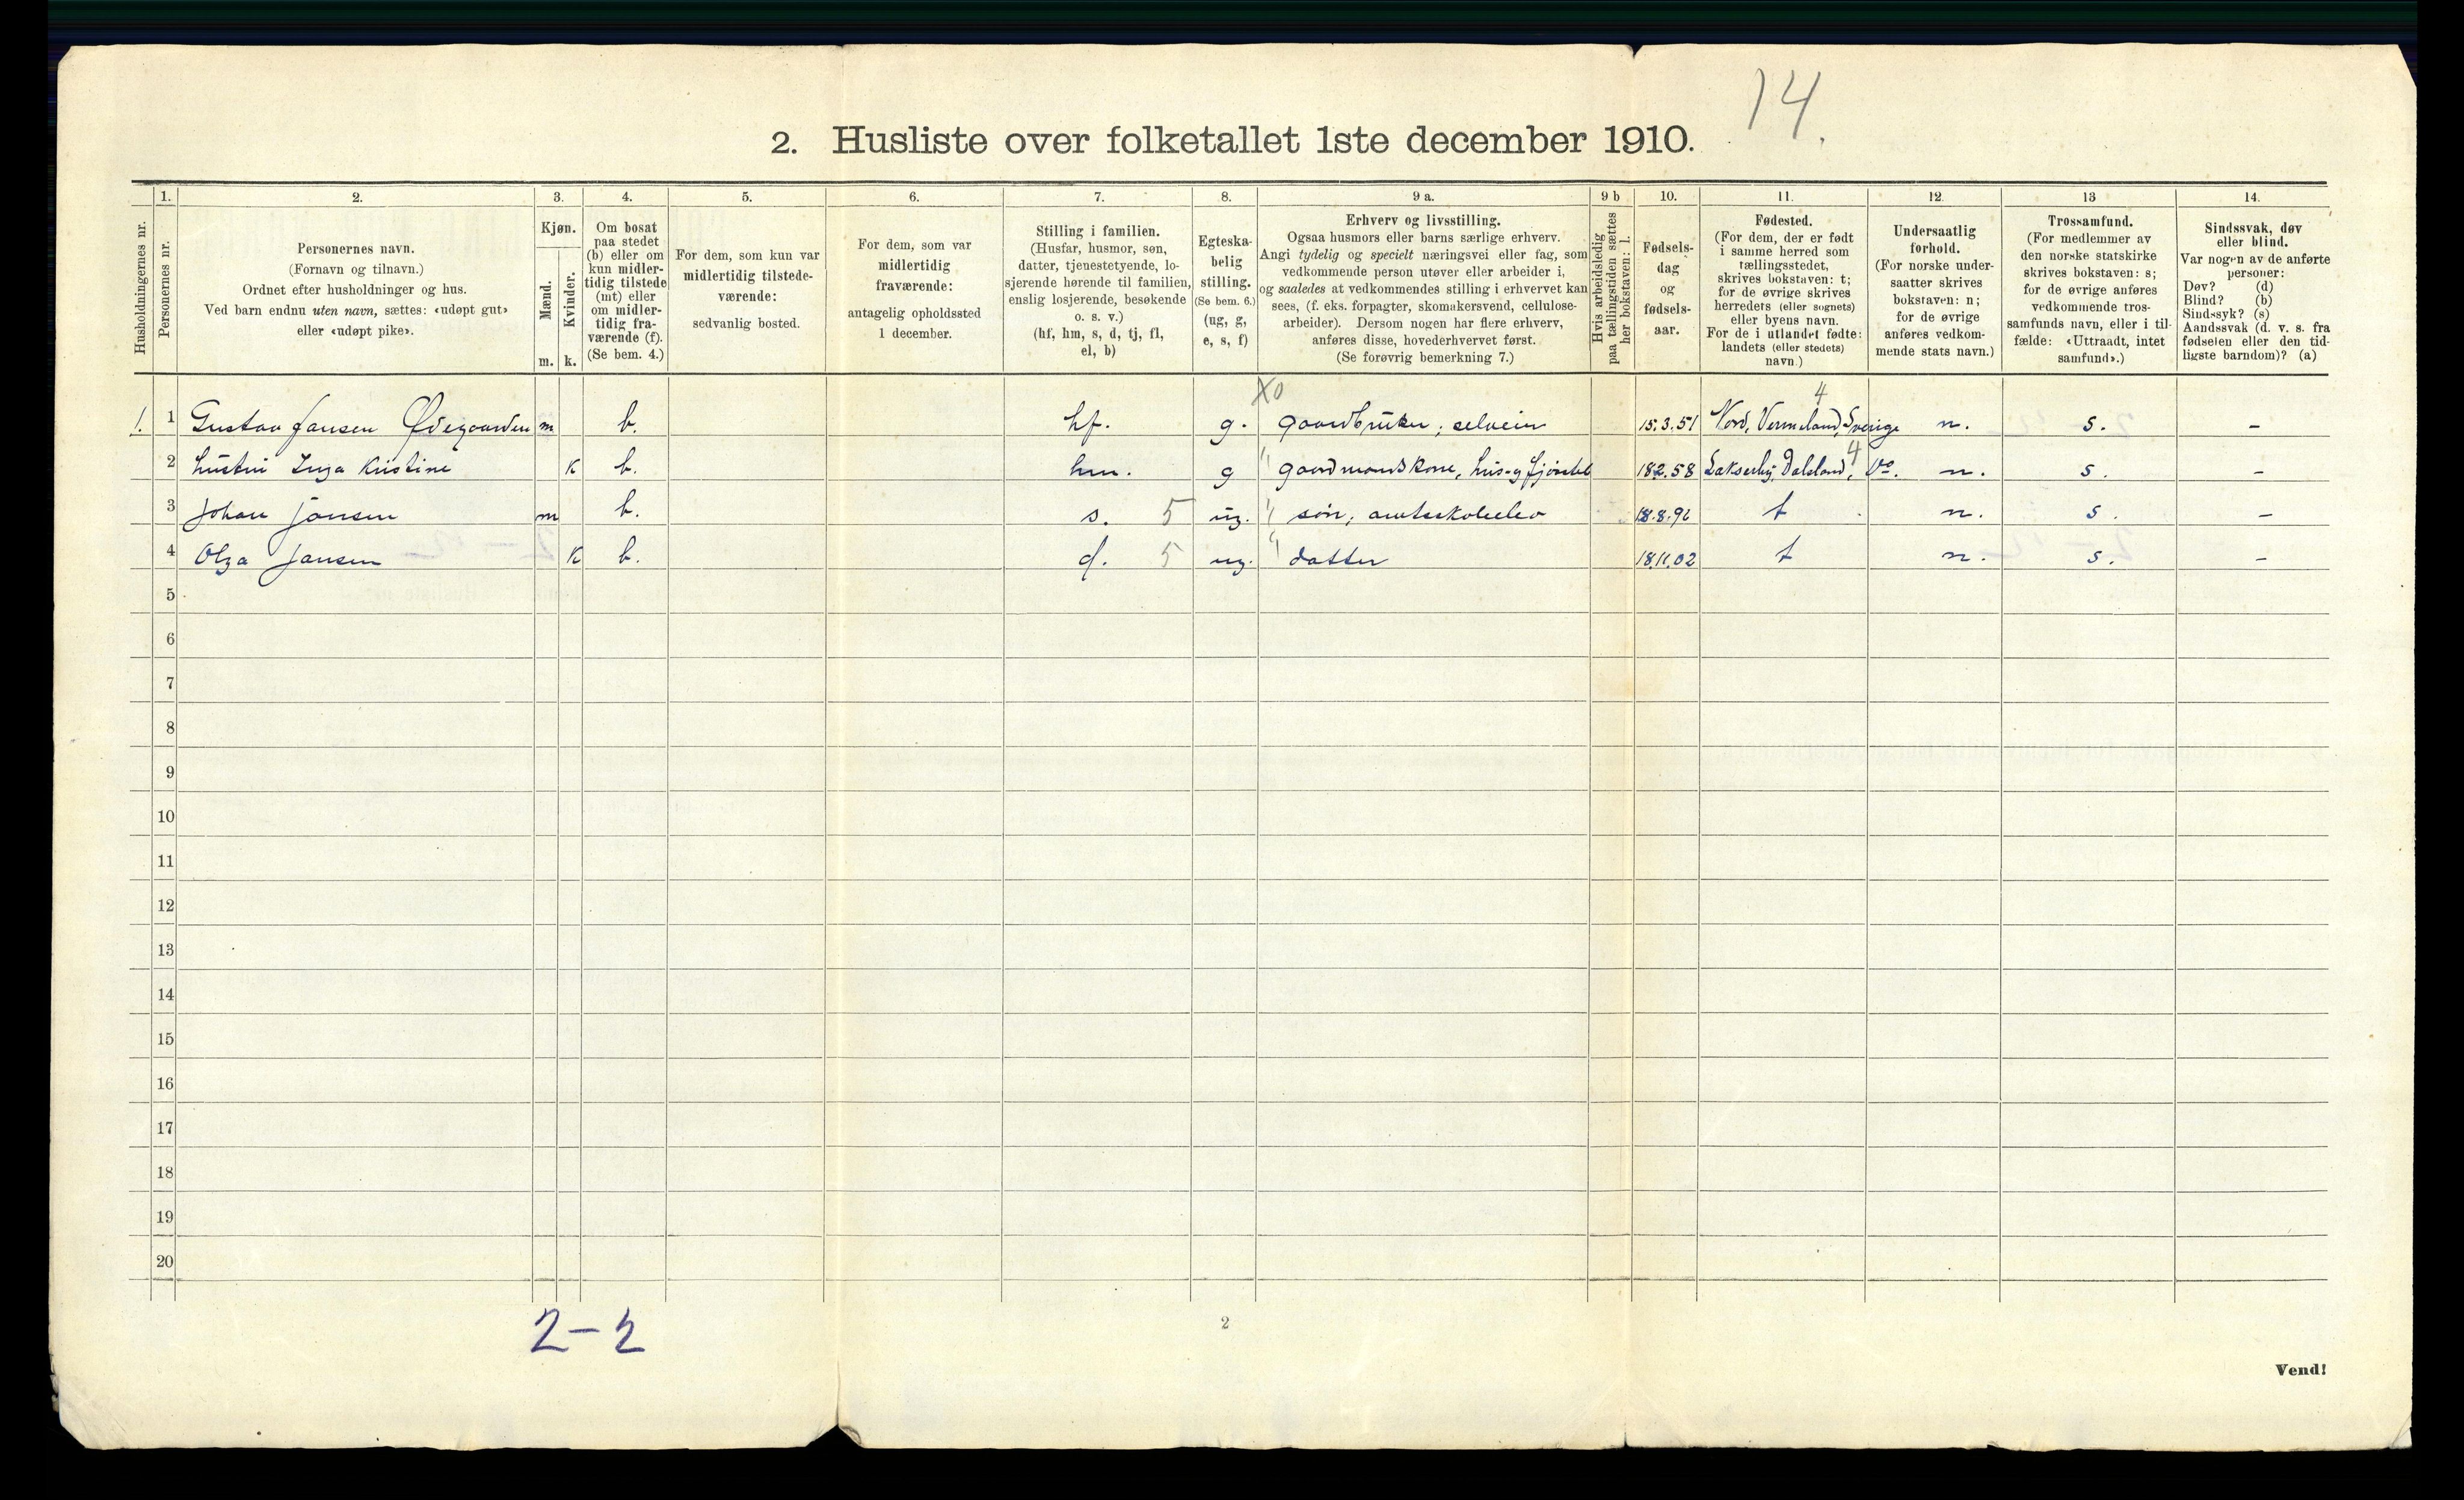 14.
2. Husliste over folketallet 1ste december 1910.
Husholdningernes nr.
1.
Personernes nr.
2.
Personernes navn.
(Fornavn og tilnavn.)
Ordnet efter husholdninger og hus.
Ved barn endnu uten navn, sættes: «udøpt gut»
eller «udøpt pike».
3.
Kjøn.
Mænd.
m.
Kvinder.
k.
4.
Om bosat
paa stedet
(b) eller om
kun midler-
tidig tilstede
(mt) eller
om midler-
tidig fra-
værende (f).
(Se bem. 4.)
5.
For dem, som kun var
midlertidig tilstede-
værende:
sedvanlig bosted.
6.
For dem, som var
midlertidig
fraværende:
antagelig opholdssted
1 december.
7.
Stilling i familien.
(Husfar, husmor, søn,
datter, tjenestetyende, lo-
sjerende hørende til familien,
enslig losjerende, besøkende
o. s. v.)
(hf, hm, s, d, tj, fl,
el, b)
8.
Egteska-
belig
stilling.
(Se bem. 6.)
(ug, g,
e, s, f)
9 a.
Erhverv og livsstilling.
Ogsaa husmors eller barns særlige erhverv.
Angi tydelig og specielt næringsvei eller fag, som
vedkommende person utøver eller arbeider i,
og saaledes at vedkommendes stilling i erhvervet kan
sees, (f. eks. forpagter, skomakersvend, cellulose-
arbeider). Dersom nogen har flere erhverv,
anføres disse, hovederhvervet først.
(Se forøvrig bemerkning 7.)
9 b
Hvis arbeidsledig
paa tællingstiden sættes
her bokstaven: l.
10.
Fødsels-
dag
og
fødsels-
aar.
11.
Fødested.
(For dem, der er født
i samme herred som
tællingsstedet,
skrives bokstaven: t;
for de øvrige skrives
herreders (eller sognets)
eller byens navn.
For de i utlandet fødte:
landets (eller stedets)
navn.)
12.
Undersaatlig
forhold.
(For norske under-
saatter skrives
bokstaven: n;
for de øvrige
anføres vedkom-
mende stats navn.)
13
Trossamfund.
(For medlemmer av
den norske statskirke
skrives bokstaven: s;
for de øvrige anføres
vedkommende tros-
samfunds navn, eller i til-
fælde: «Uttraadt, intet
samfund».)
14.
Sindssvak, døv
eller blind.
Var nogen av de anførte
personer:
Døv? (d)
Blind? (b)
Sindssyk? (s)
Aandssvak (d. v. s. fra
fødselen eller den tid-
ligste barndom)? (a)
X0 4
1. 1 Gustav Jansen Ødegaarden m b. hf. g. gaardbruker, selveier 15.3.51 Nord, Vermeland, Sverige n. s. -
2 hustru Inga Kristine k b. hm. g " gaardmandskone, hus- og 18.2.58 Dalsland, 4 Do. n. s. -
3 Johan Jansen m b. s. 5 ug. " søn, amtsskoleelev 18.8.92 t n. s. -
4 Olga Jansen k b. d. 5 ug. " datter 18.11.02 t n. s. -
5
6
7
8
9
10
11
12
13
14
15
16
17
18
19
20
2-2
2
Vend!